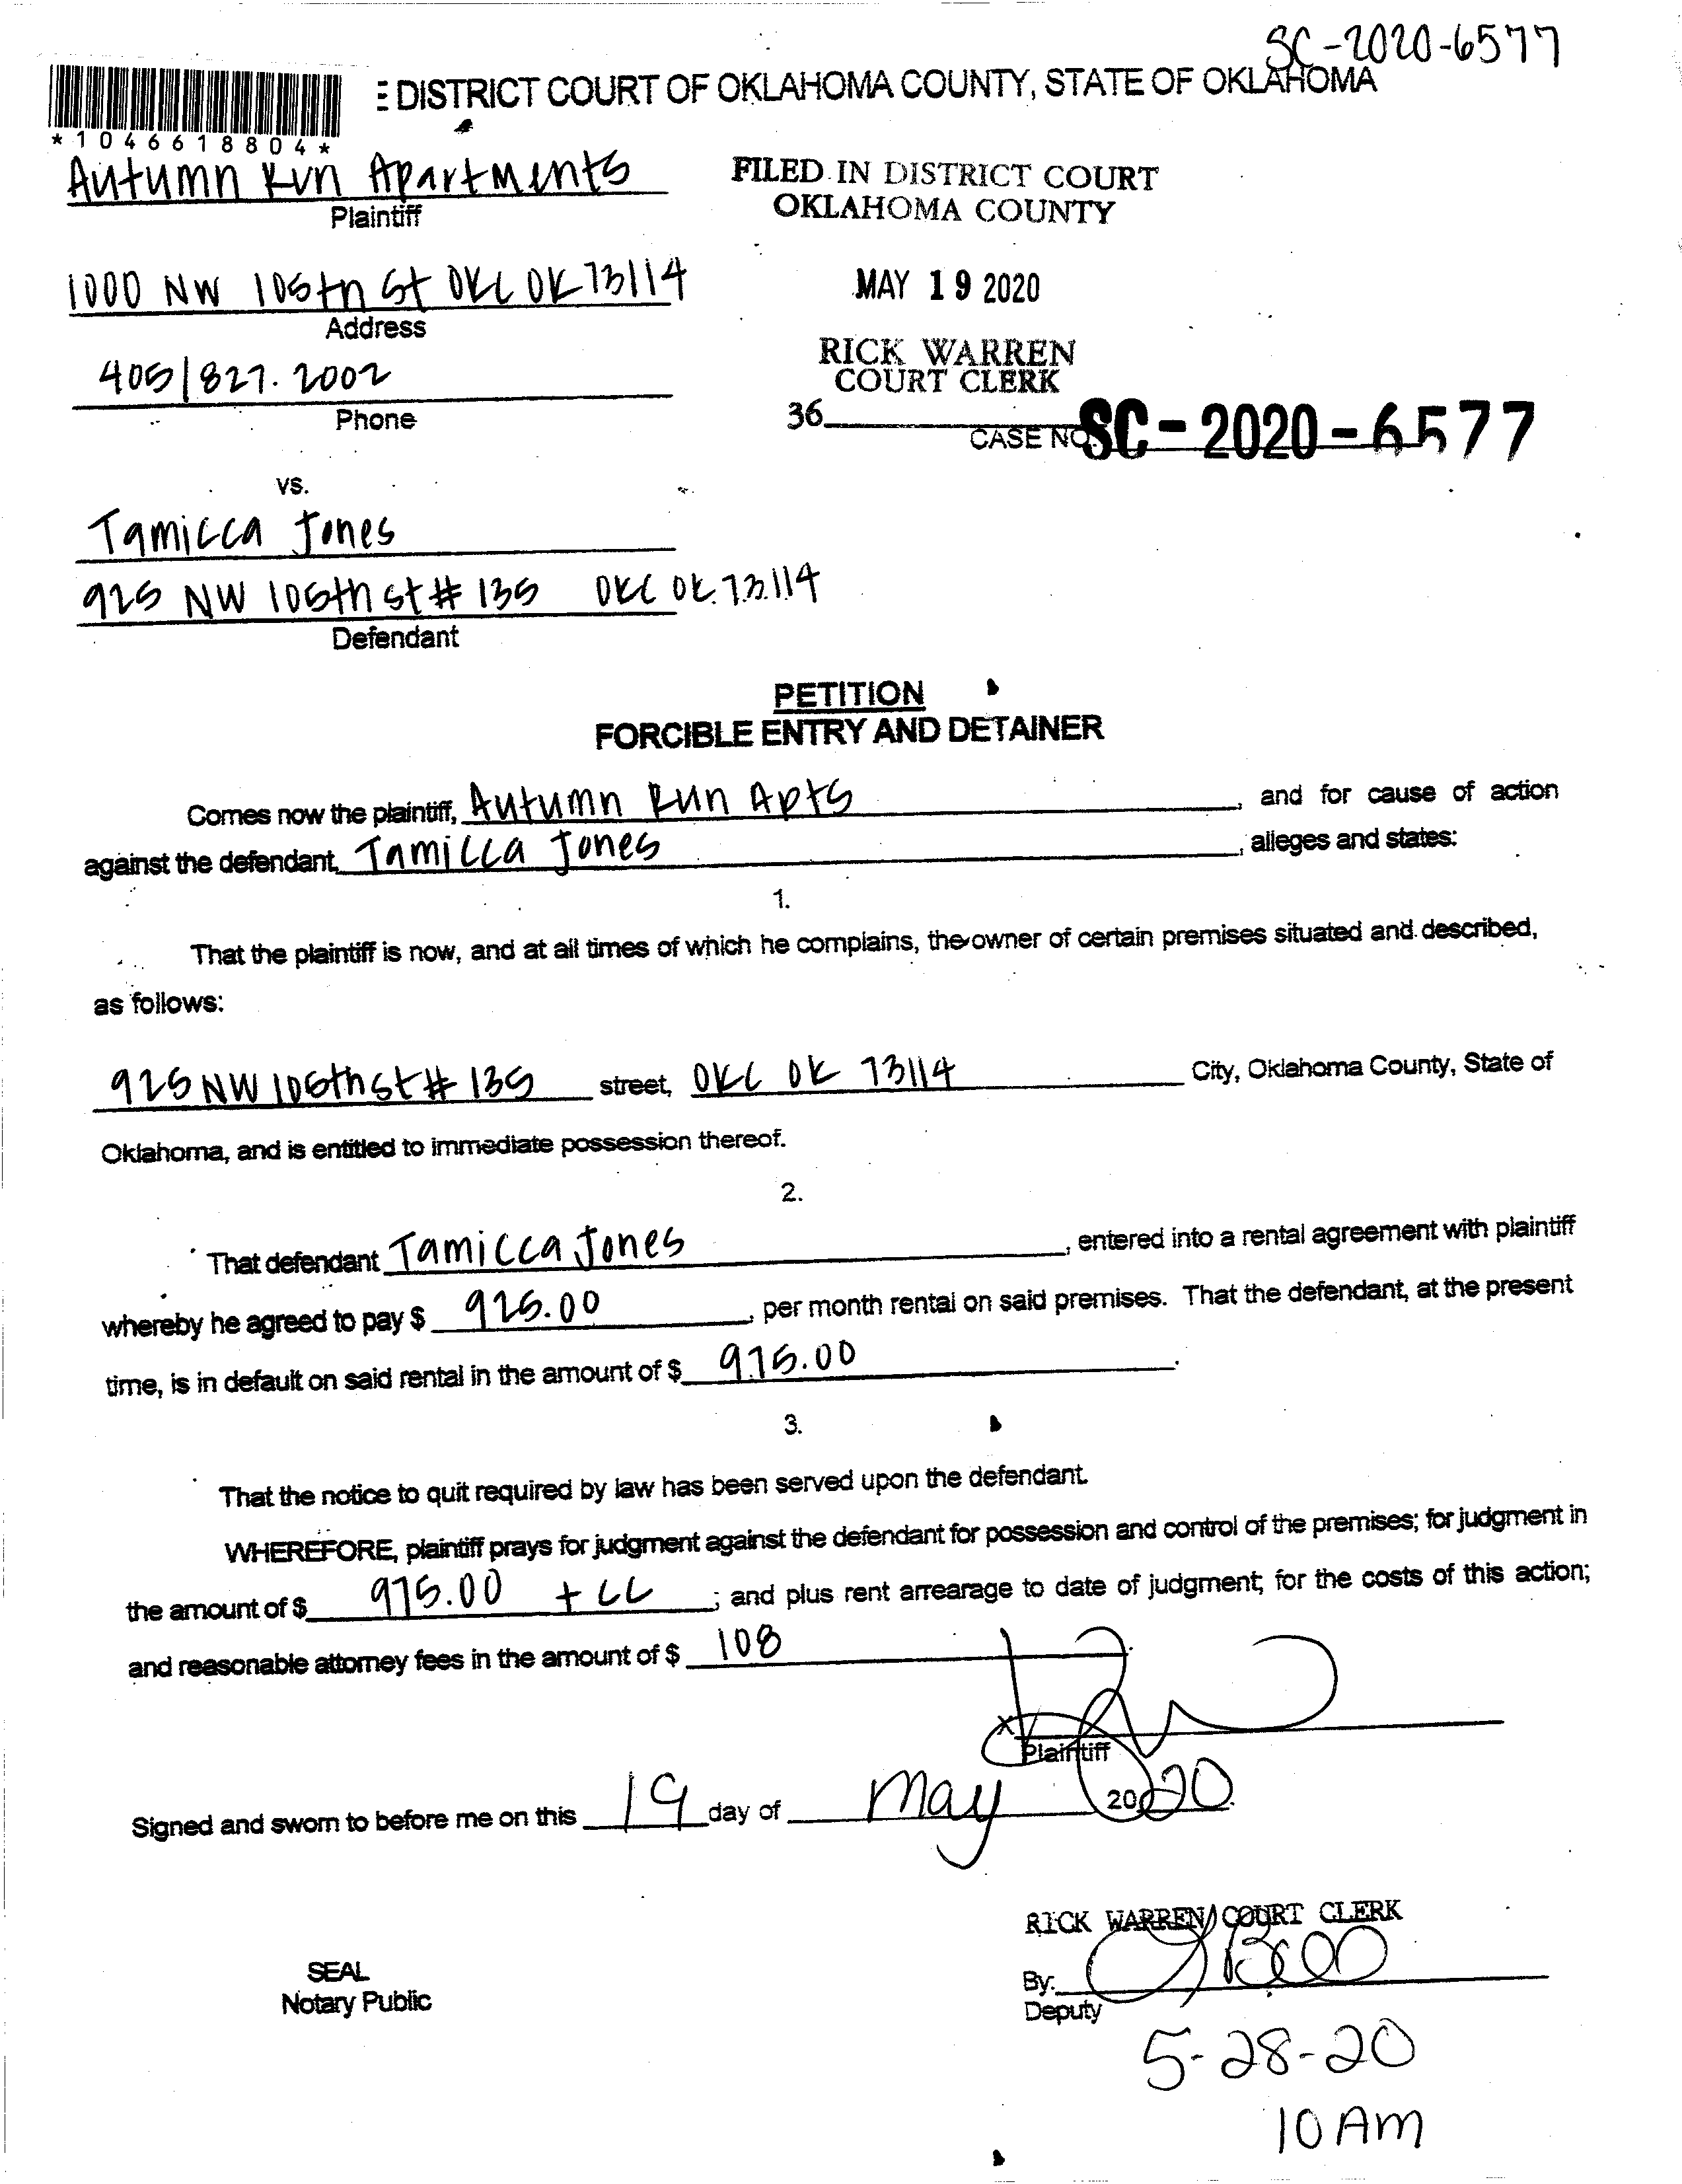 SC-2020-6577
E DISTRICT COURT OF OKLAHOMA COUNTY, STATE OF OKLAHOMA
*1046618804*
Autumn Run Apartments
Plaintiff
FILED IN DISTRICT COURT
OKLAHOMA COUNTY
1000 NW 105th St OKC OK 73114
Address
MAY 19 2020
405/827.2002
Phone
RICK WARREN
COURT CLERK
36
CASE NO. SC-2020-6577
vs.
Tamicca Jones
925 NW 105th st # 135 OKC OK 73114
Defendant
PETITION
FORCIBLE ENTRY AND DETAINER
Comes now the plaintiff, Autumn Run Apts, and for cause of action
against the defendant, Tamicca Jones, alleges and states:
1.
That the plaintiff is now, and at all times of which he complains, the owner of certain premises situated and described,
as follows:
925 NW 105th st # 135 street, OKC OK 73114 City, Oklahoma County, State of
Oklahoma, and is entitled to immediate possession thereof.
2.
That defendant Tamicca Jones, entered into a rental agreement with plaintiff
whereby he agreed to pay $ 925.00, per month rental on said premises. That the defendant, at the present
time, is in default on said rental in the amount of $ 975.00.
3.
That the notice to quit required by law has been served upon the defendant.
WHEREFORE, plaintiff prays for judgment against the defendant for possession and control of the premises; for judgment in
the amount of $ 975.00 + CC; and plus rent arrearage to date of judgment; for the costs of this action;
and reasonable attorney fees in the amount of $ 108
X
Plaintiff
Signed and sworn to before me on this 19 day of May 2020.
RICK WARREN, COURT CLERK
SEAL
Notary Public
By:
Deputy
5-28-20
10 AM